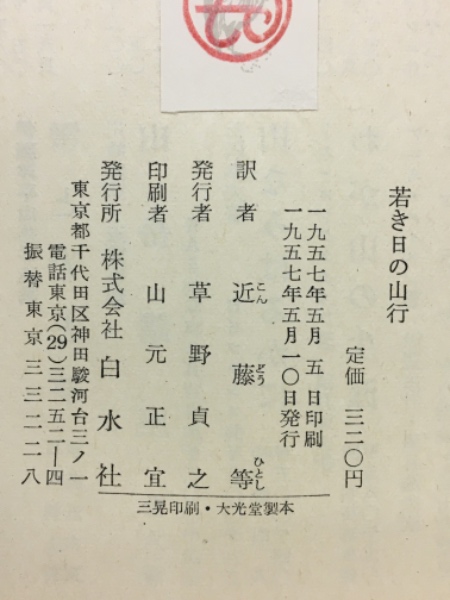 若き日の山行
定価 三二〇円
一九五七年五月 五 日印刷
一九五七年五月一〇日発行
訳者 近藤等
こん どう ひとし
発行者 草野貞之
印刷者 山元正宜
発行所 株式会社 白水社
東京都千代田区神田駿河台三ノ一
電話東京(29)三二五二―四
振替東京 三三二二八
三晃印刷・大光堂製本